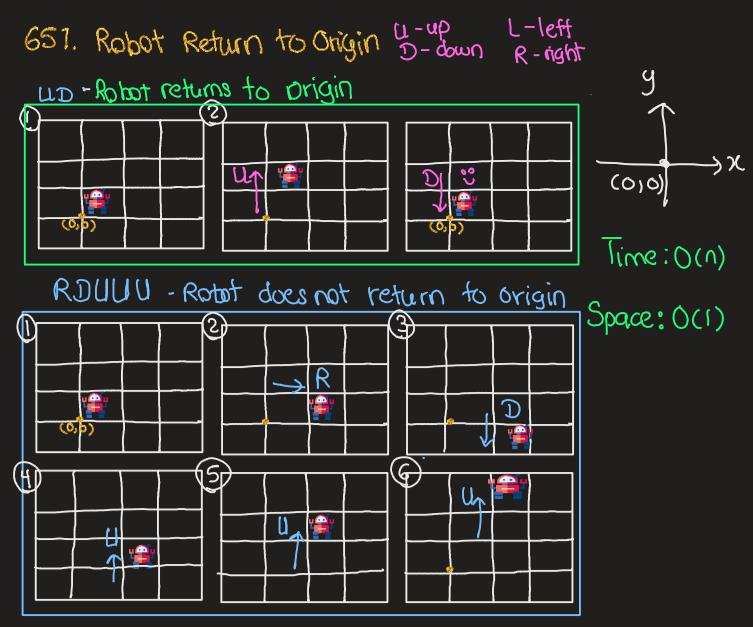 657. Robot Return to Origin
U-up L-left
D-down R-right
UD - Robot returns to origin
1 2
U
D
(0,0) (0,0)
y
x
(0,0)
Time: O(n)
Space: O(1)
RDUUU - Robot does not return to origin
1 2 3
R
D
(0,0)
4 5 6
U U U